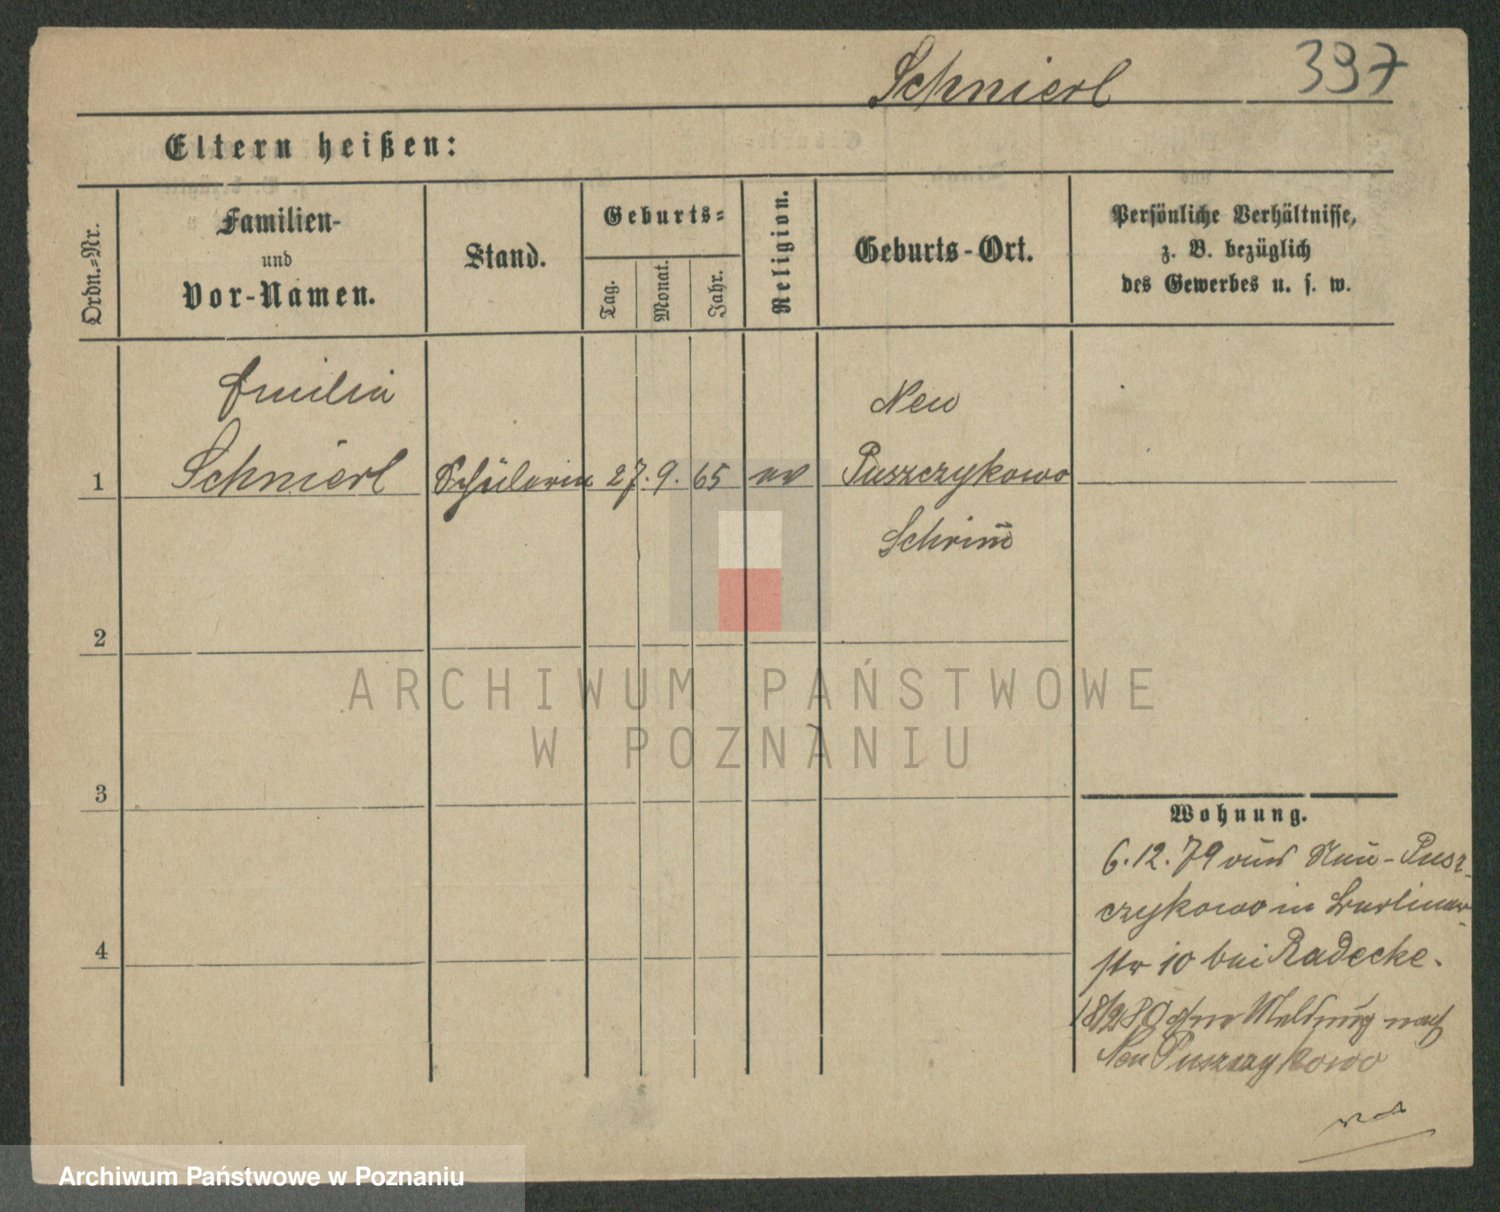 Schnierl
397
Eltern heißen:
Ordn.-Nr.
Familien-
und
Vor-Namen.
Stand.
Geburts-
Tag.
Monat.
Jahr.
Religion.
Geburts-Ort.
Persönliche Verhältnisse,
z. B. bezüglich
des Gewerbes u. s. w.
Emilia
Neu
1 Schnierl Schülerin 27. 9. 65 ev Puszczykowo
Schrim̄
2
ARCHIWUM PAŃSTWOWE
W POZNANIU
3
4
Wohnung.
6.12.79 aus Neu-Pusz-
czykowo in Berliner-
str 10 bei Radecke.
18/2 80 ohne Meldung nach
Neu Puszczykowo
Archiwum Państwowe w Poznaniu